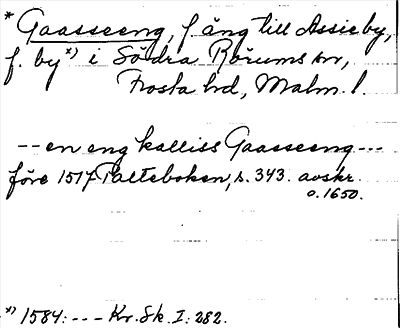 * Gaasseeng, f. äng till Assieby,
f. by*) i Södra Rörums sn,
Frosta hd, Malm. l.
-- en eng kalliss Gaasseeng ---
före 1517 Palteboken, s. 343. avskr.
o. 1650.
*) 1584: --- Kr. Sk. I: 282.